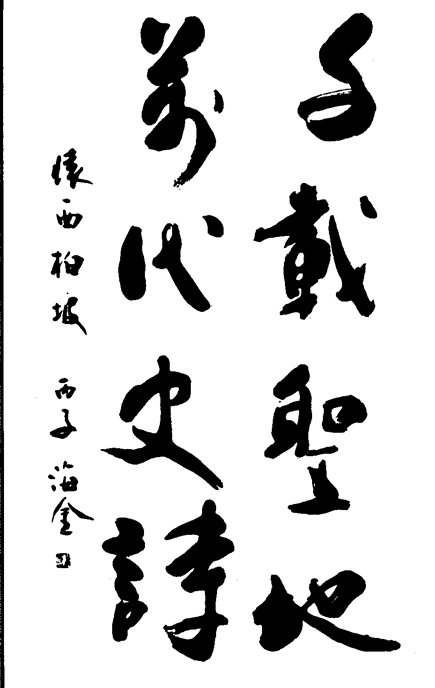 千載聖地
萬代史詩
懐西柏坡 丙子海金